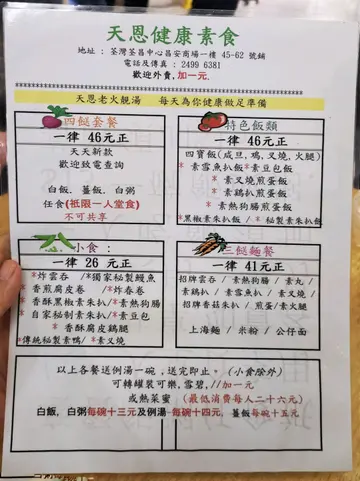 天恩健康素食
地址：荃灣荃昌中心昌安商場一樓 45-62 號鋪
電話及傳真：2499 6381
歡迎外賣,加一元.
天恩老火靚湯 每天為你健康做足準備
四餸套餐
一律 46元正
天天新款
歡迎致電查詢
白飯、薑飯、白粥
任食(祗限一人堂食)
不可共享
特色飯類
一律 46元正
四寶飯(咸旦,鴨,叉燒,火腿)
*素雪魚扒飯*素豆包飯
*素叉燒煎蛋飯
*素鷄扒煎蛋飯
*素熱狗腸煎蛋飯
*黑椒素朱扒飯/*秘製素朱扒飯
小食:
一律 26 元正
*炸雲吞 /*獨家秘製鰻魚
*香煎腐皮卷 /*炸春卷
*香酥黑椒素朱扒/*素熱狗腸
*自家秘制素朱扒/*素豆包
*香酥腐皮鷄腿
*傳統秘製素鴨/*素叉燒
三餸麵餐
一律 41元正
招牌雲吞 / 素熱狗腸 / 素丸 /
素鷄扒 / 素雪魚扒 / 素叉燒 /
招牌香菇朱扒 / 煎蛋/素火腿
上海麵 / 米粉 / 公仔面
以上各餐送例湯一碗,送完即止。(小食除外)
可轉罐裝可樂,雪碧,//加一元
或熱菜蜜 (最低消費每人二十六元)
白飯,白粥每碗十三元及例湯每碗十四元, 薑飯每碗十五元